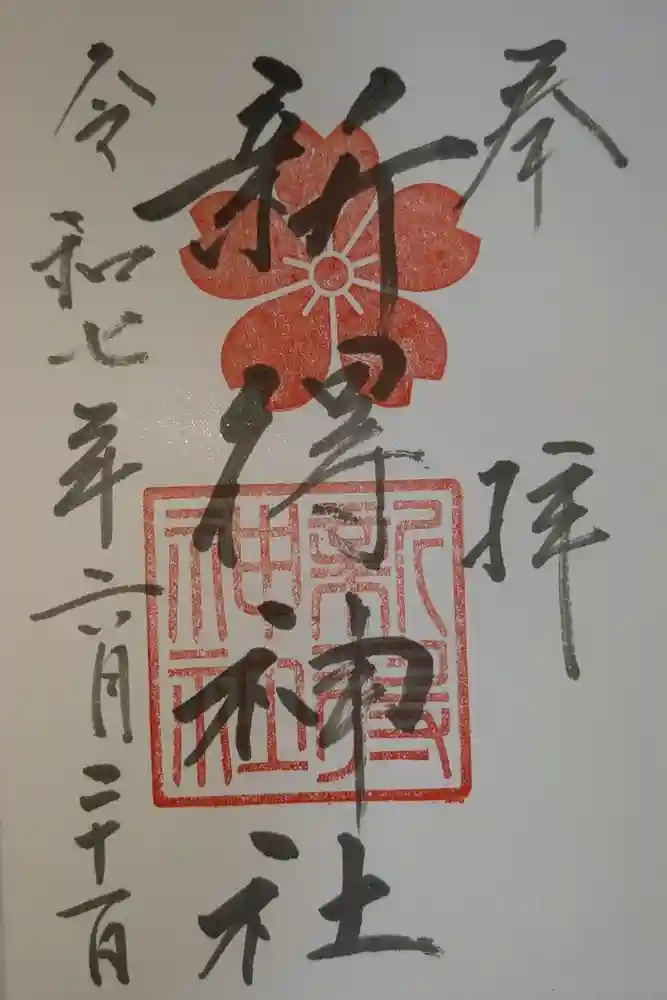 奉拝
新得神社
新得
神社
令和七年六月二十一日